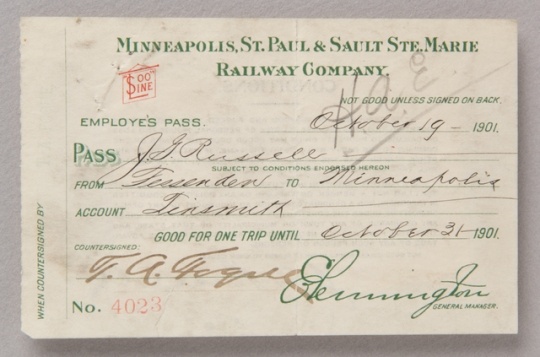 MINNEAPOLIS, ST. PAUL & SAULT STE. MARIE
RAILWAY COMPANY.
$OO LINE
NOT GOOD UNLESS SIGNED ON BACK.
EMPLOYE'S PASS. October 19- 1901.
PASS J.G. Russell
SUBJECT TO CONDITIONS ENDORSED HEREON
FROM Fessenden TO Minneapolis
ACCOUNT Tinsmith
GOOD FOR ONE TRIP UNTIL October 31- 1901.
COUNTERSIGNED:
T. A.
GENERAL MANAGER.
No. 4023
WHEN COUNTERSIGNED BY